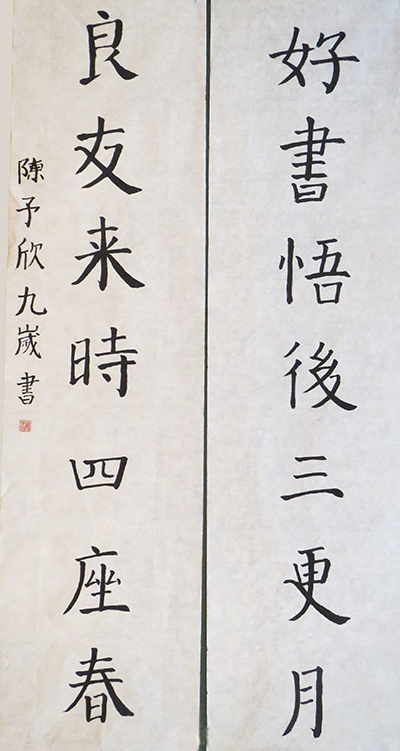 好書悟後三更月
良友来時四座春
陳予欣九歲書